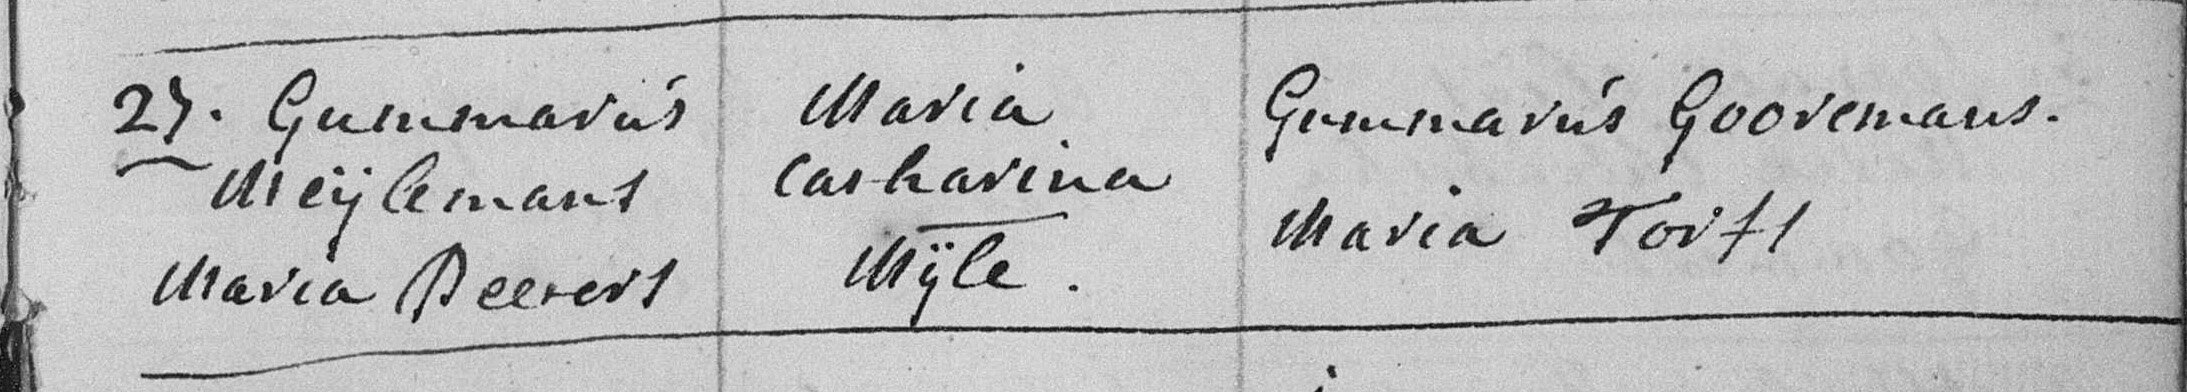 27. Gummarus
Meÿlemans
Maria Beerens
Maria
Catharina
Mÿle.
Gummarus Gooremans.
Maria Torfs